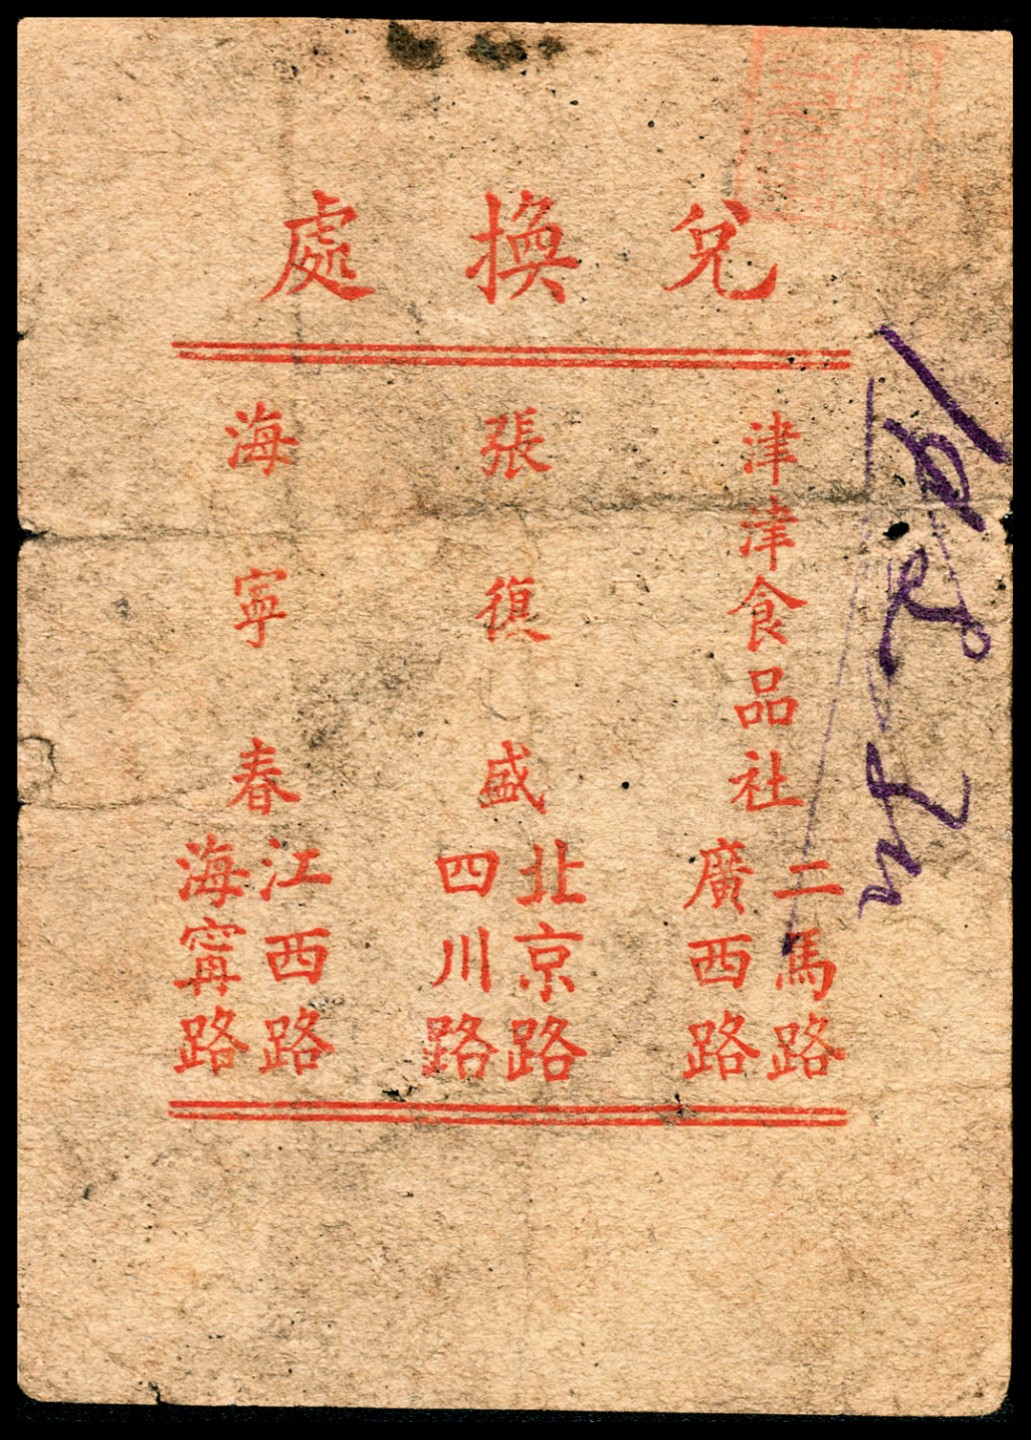 兌換處
津津食品社
二馬路
廣西路
張復盛
北京路
四川路
海寧春
江西路
海甯路